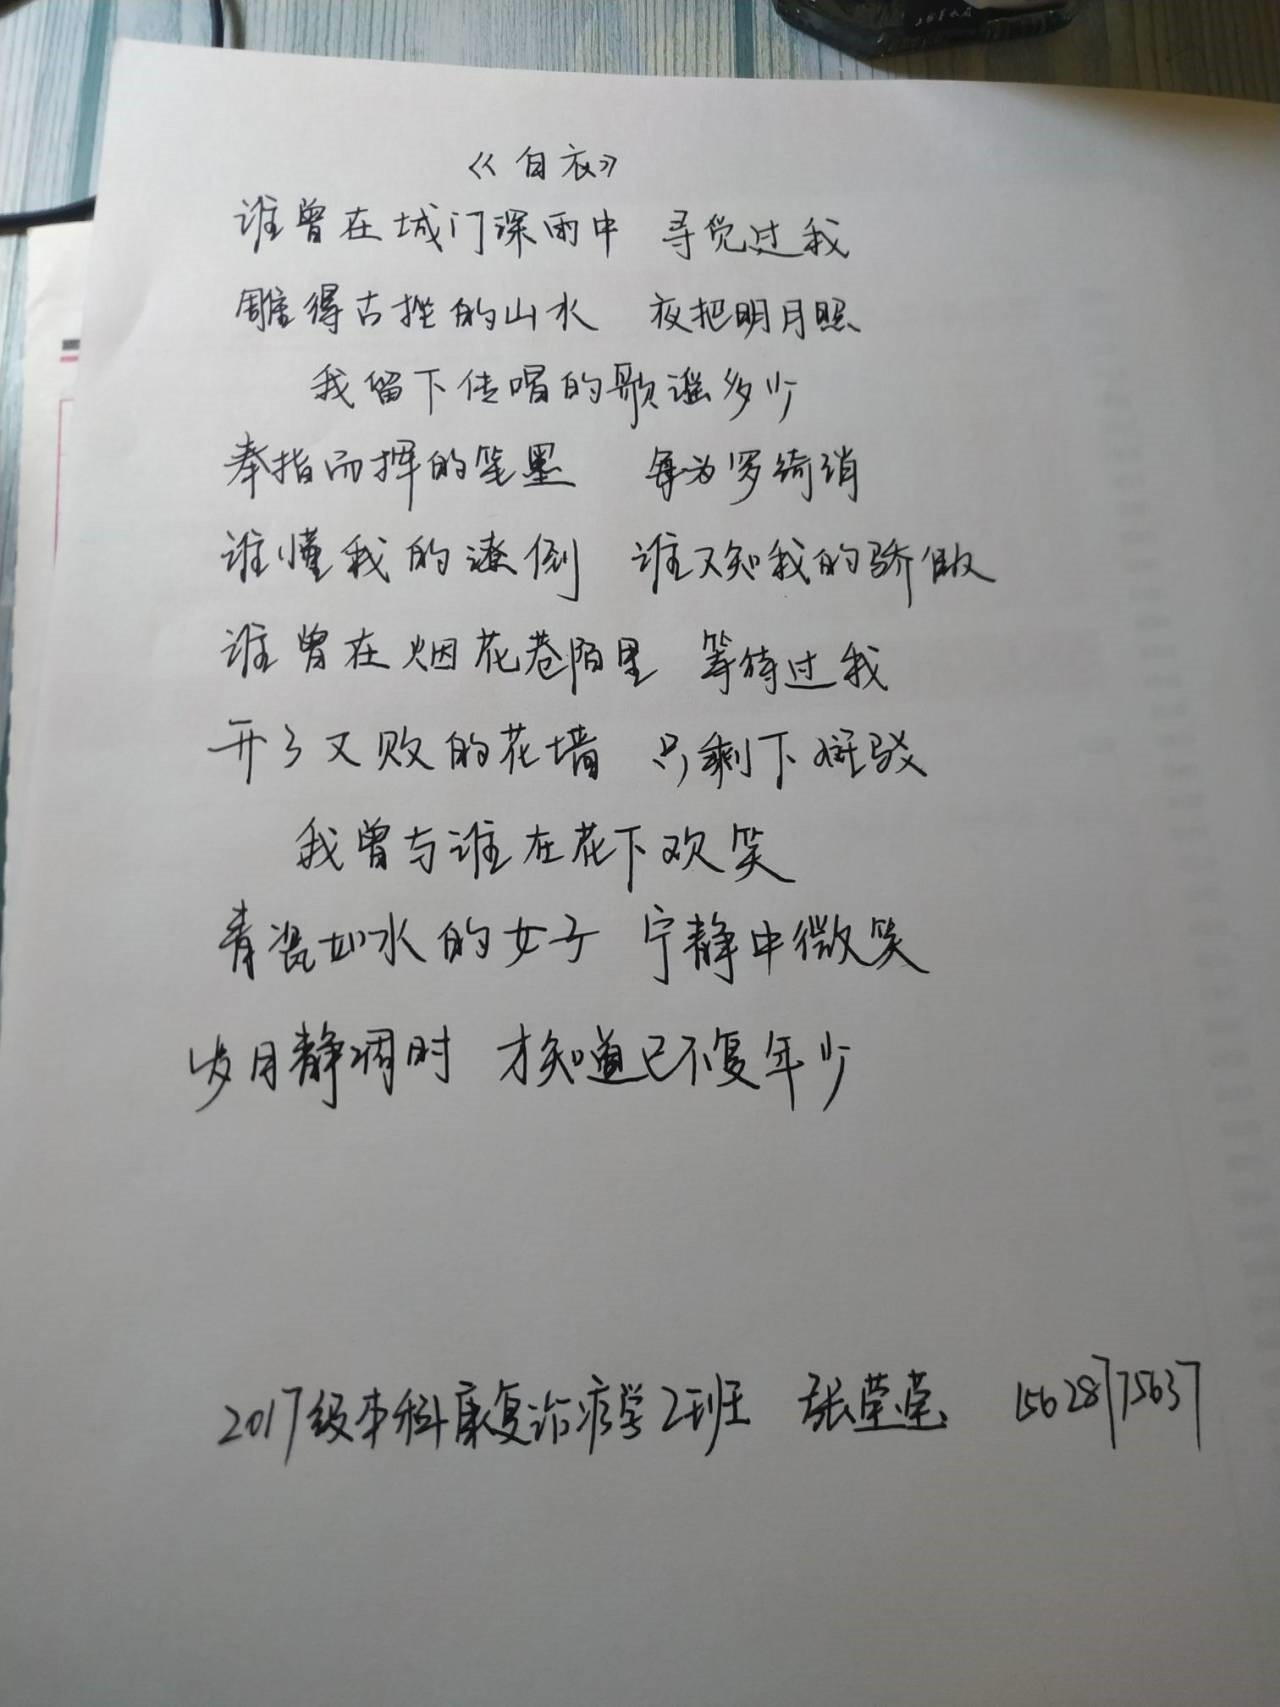 《白衣》
谁曾在城门深雨中 寻觅过我
雕得古拙的山水 夜把明月照
我留下传唱的歌谣多少
奉指而挥的笔墨 每为罗绮消
谁懂我的潦倒 谁又知我的骄傲
谁曾在烟花巷陌里 等待过我
开了又败的花墙 只剩下斑驳
我曾与谁在花下欢笑
青瓷如水的女子 宁静中微笑
岁月静凋时 才知道已不复年少
2017级本科康复治疗学2班 张莹莹 15628775637